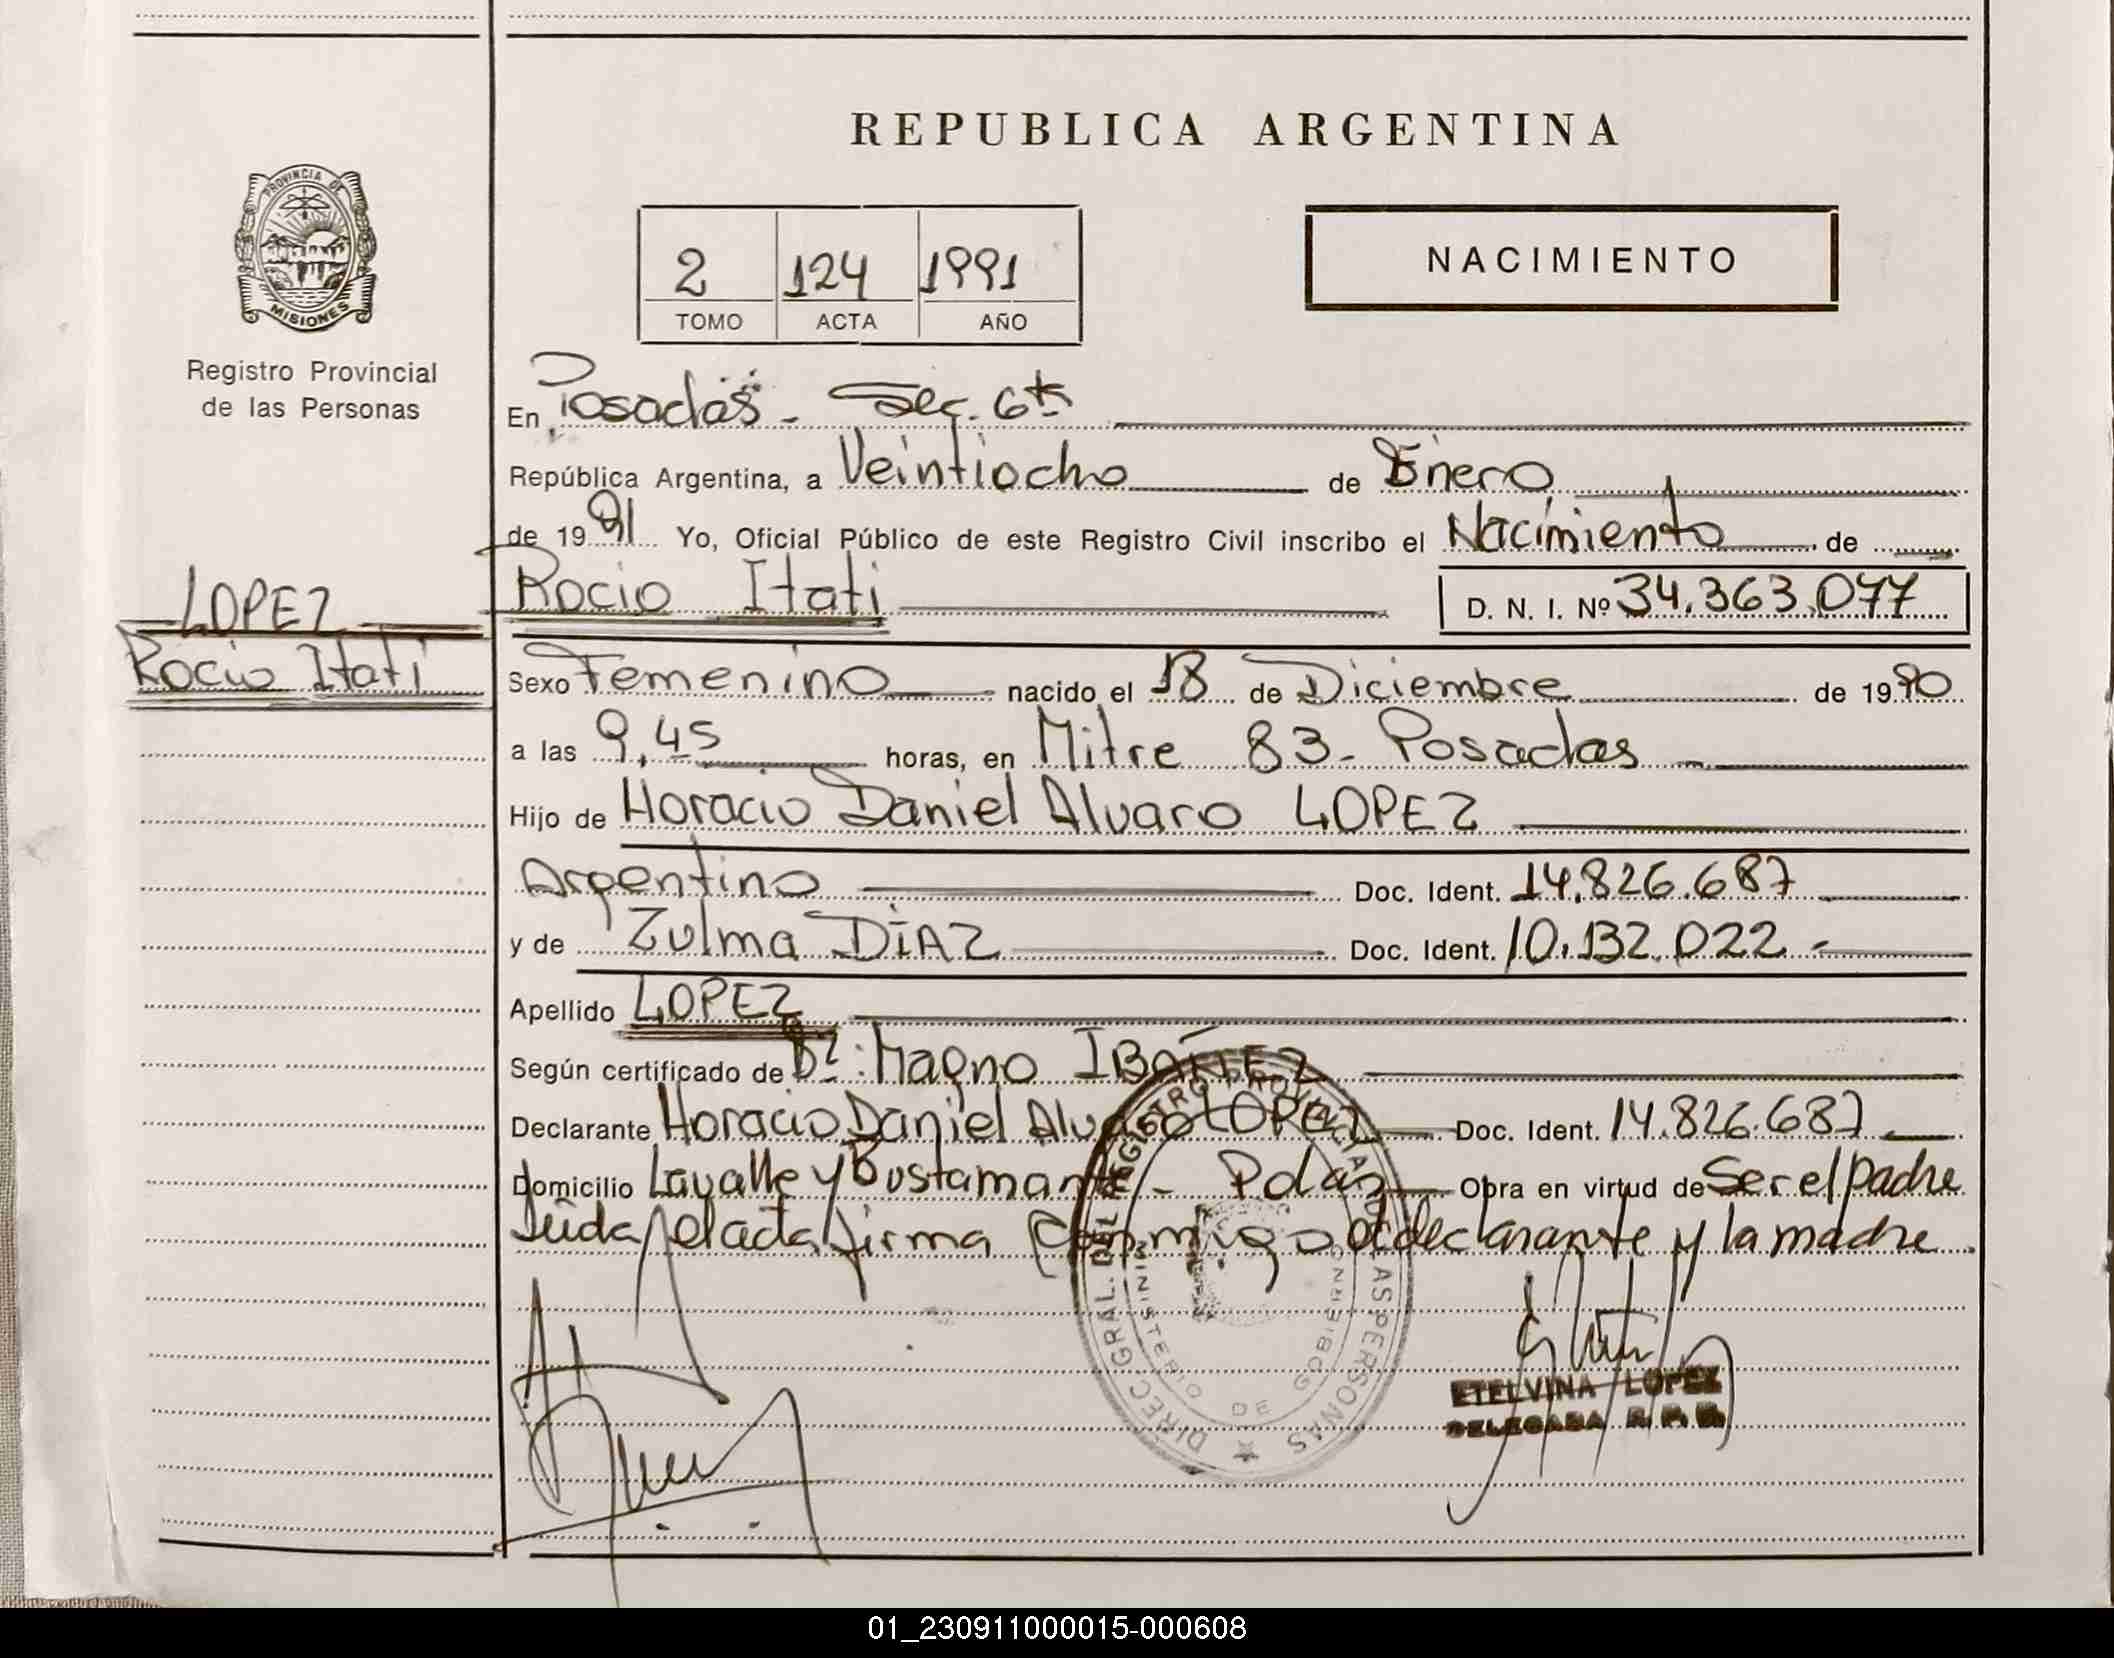 REPUBLICA ARGENTINA
PROVINCIA DE
MISIONES
Registro Provincial
de las Personas
NACIMIENTO
2 124 1991
TOMO ACTA AÑO
En Posadas - Sec. 6ta
República Argentina, a Veintiocho de Enero
de 1991 Yo, Oficial Público de este Registro Civil inscribo el Nacimiento de
LOPEZ
Rocio Itati
Rocio Itati D. N. I. Nº 34.363.077
Sexo Femenino nacido el 18 de Diciembre de 1990
a las 9,45 horas, en Mitre 83 - Posadas
Hijo de Horacio Daniel Alvaro LOPEZ
Argentino Doc. Ident. 14.826.687
y de Zulma DiAZ Doc. Ident. 10.132.022.-
Apellido LOPEZ
Según certificado de Dr: Magno IBAÑEZ
Declarante Horacio Daniel Alvaro LOPEZ Doc. Ident. 14.826.687
Domicilio Lavalle y Bustamante - Pdas Obra en virtud de Ser el padre
Leida el acta firma conmigo el declarante y la madre.
DIREC. GRAL. DEL REGISTRO PROVINCIAL DE LAS PERSONAS
MINISTERIO DE GOBIERNO
ETELVINA LOPEZ
DELEGADA R. P. P.
01_230911000015-000608